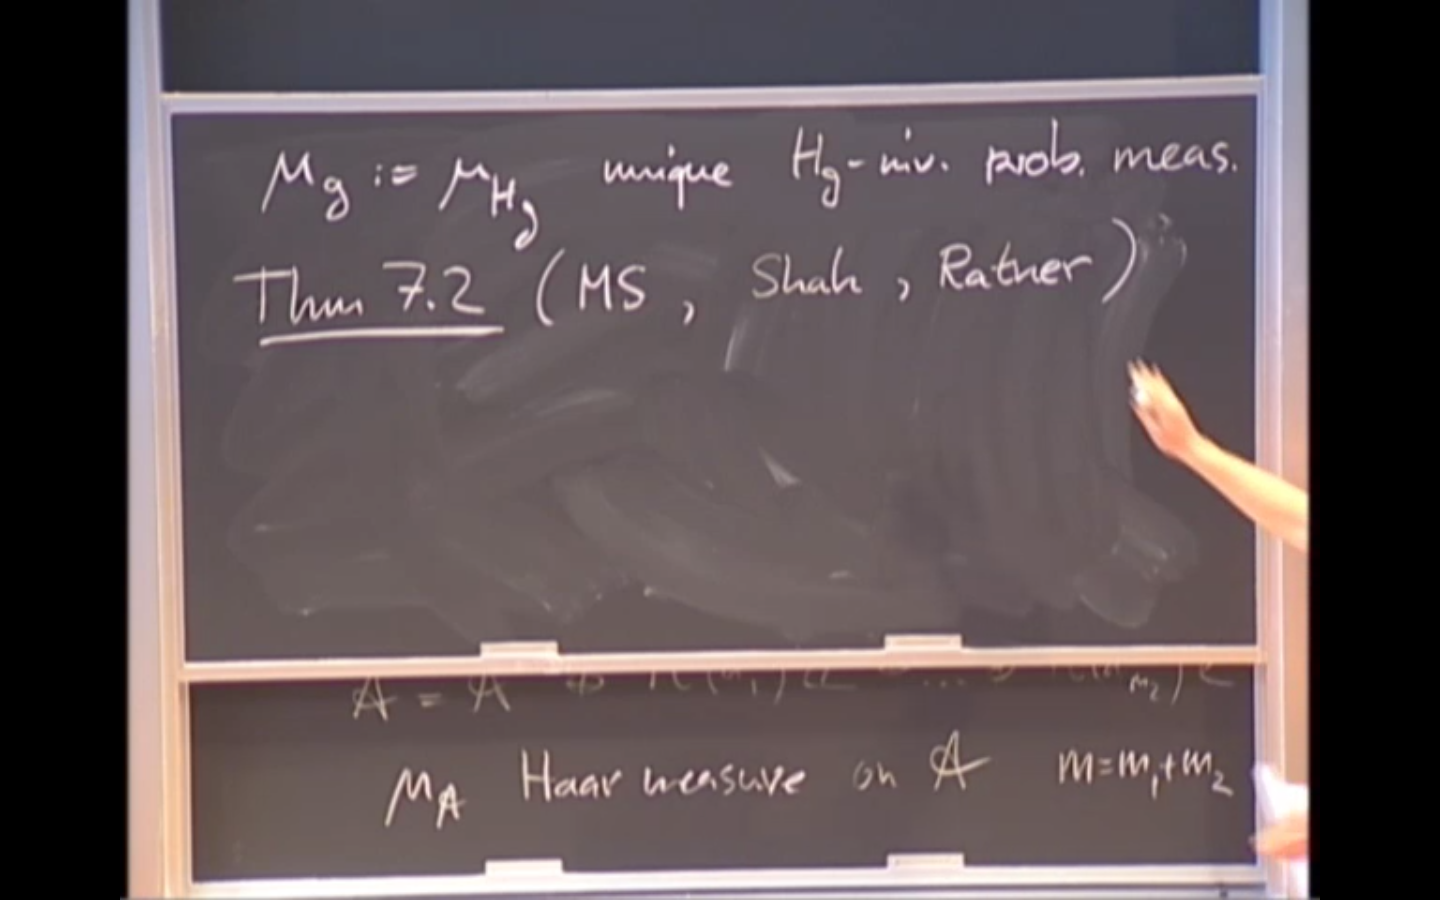 μ_g := μ_{H_g} unique H_g-inv. prob. meas.
Thm 7.2 (MS, Shah, Ratner)
A = A
μ_A Haar measure on A m=m₁+m₂